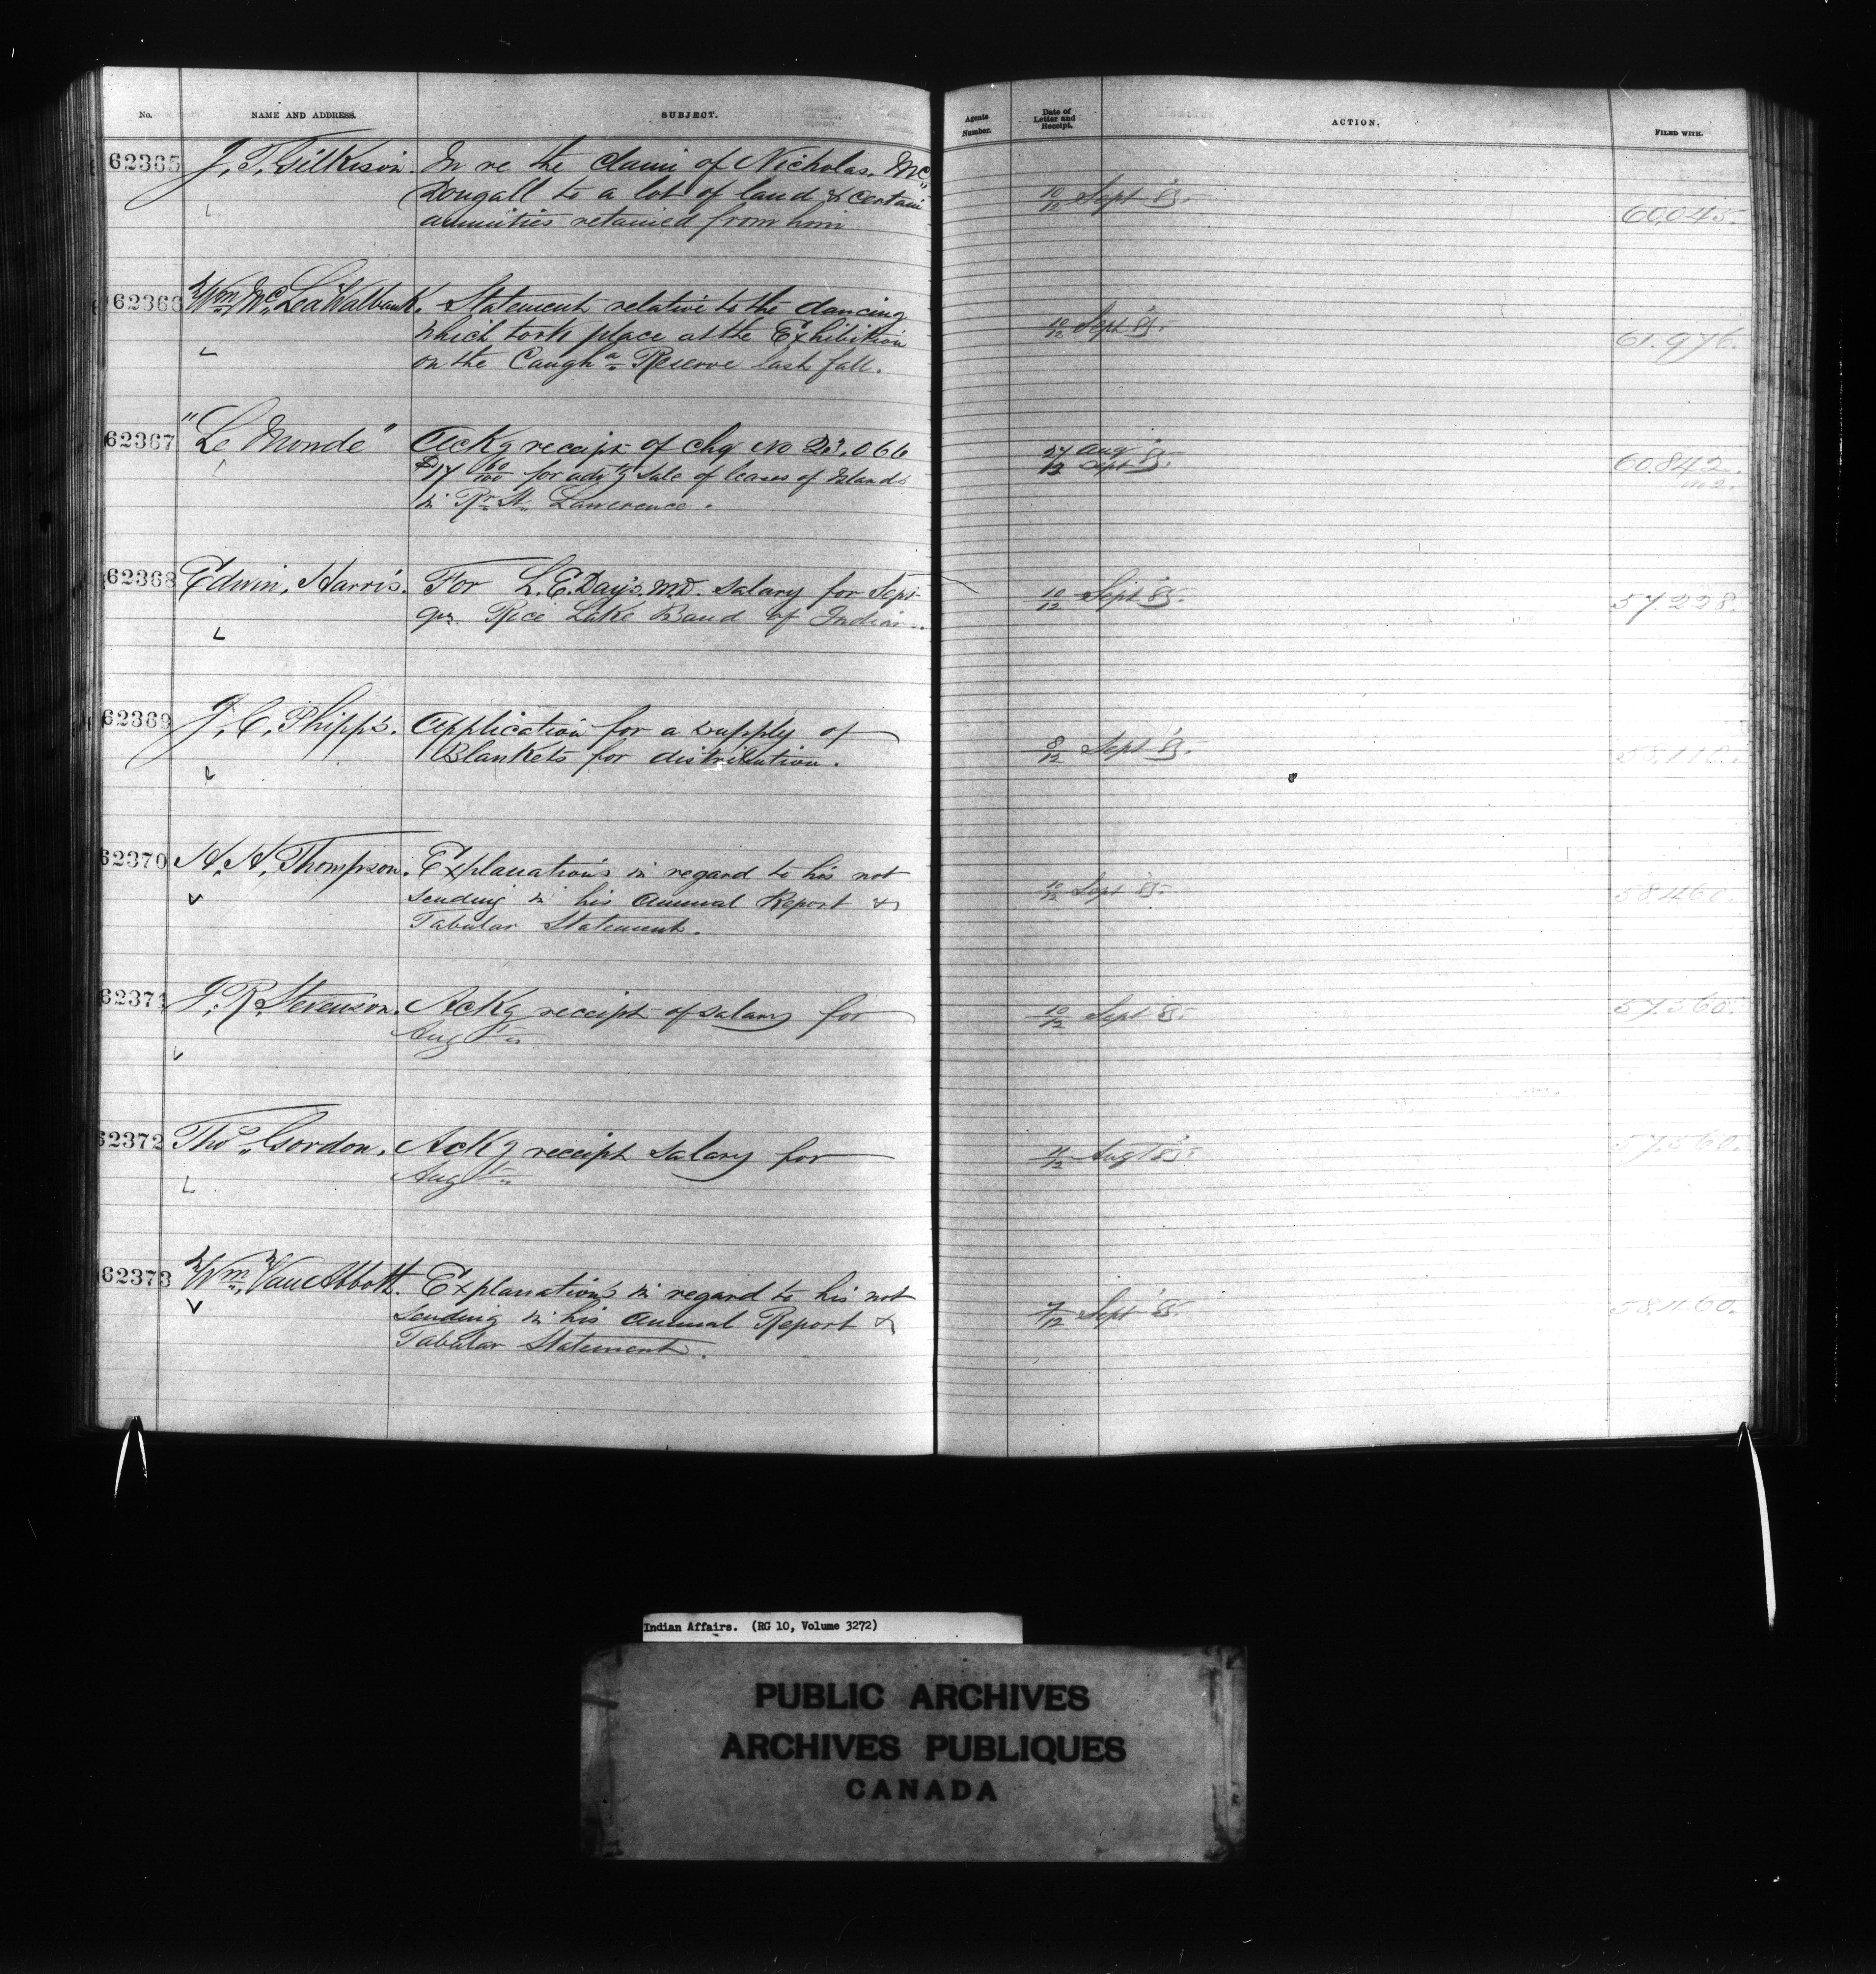 No. NAME AND ADDRESS. SUBJECT. Agents Number. Date of Letter and Receipt. ACTION. FILED WITH.
62365 J. T. Gilkison. In re the claim of Nicholas. Mc
Dougall to a lot of land & certain 10/12 Sept '85. 60,045.
annuities retained from him
62366 Wm. Mc. Lea Walbank. Statement relative to the dancing
which took place at the Exhibition 10/12 Sept '85. 61.976.
on the Caugha Reserve last fall.
62367 "Le Monde" Ackg receipt of chq No 23.066 27 Aug
$17 60/100 for advtg sale of leases of Islands 12 Sept '85. 60.842.
in Rr. St. Lawerence.
62368 Edwin, Harris. For L. E. Day's. M.D. salary for Sept- 10/12 Sept '85. 57.228.
qr. Rice Lake Band of Indians.
62369 J. C. Phipps. Application for a supply of 8/12 Sept '85. 58,110.
Blankets for distribution.
62370 A. A. Thompson. Explanations in regard to his not
sending in his Annual Report & 10/12 Sept '85. 58.460.
Tabular Statement.
62371 J. R. Stevenson. Ackg receipt of salary for 10/12 Sept '85. 57.560.
Augt.
62372 Thos. Gordon. Ackg receipt salary for 11/12 Augt '85. 57.560.
Augt.
62373 Wm. Van Abbott. Explanations in regard to his not
sending in his Annual Report & 7/12 Sept '85. 58.460.
Tabular Statement.
Indian Affairs. (RG 10, Volume 3272)
PUBLIC ARCHIVES
ARCHIVES PUBLIQUES
CANADA